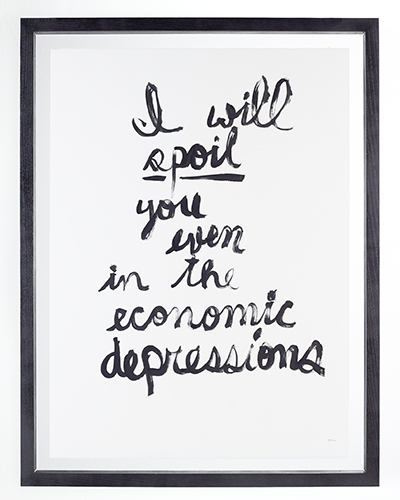 I will
spoil
you
even
in the
economic
depressions